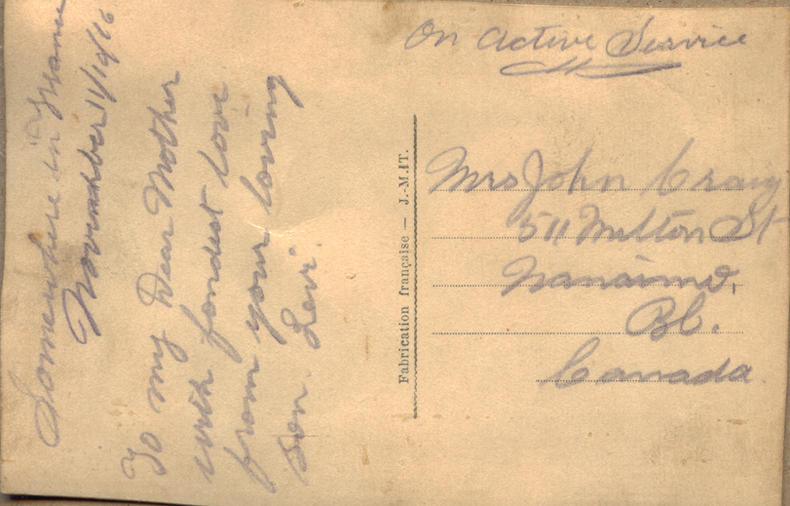 Somewhere in France
November 11/19/16
To my Dear Mother
with fondest love
from your loving
son. Levi.
Fabrication française — J.-M.IT.
On Active Service
Mrs John Craig
511 Milton St
Nanaimo,
BC.
Canada